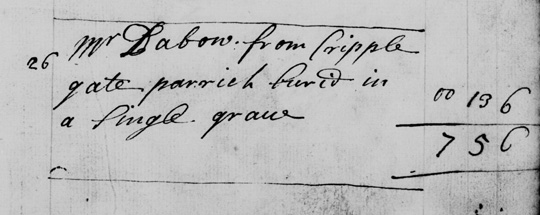 26 Mr Dabow. from Cripple
gate parrich burid in
a Single. graue 00 13 6
7 5 6